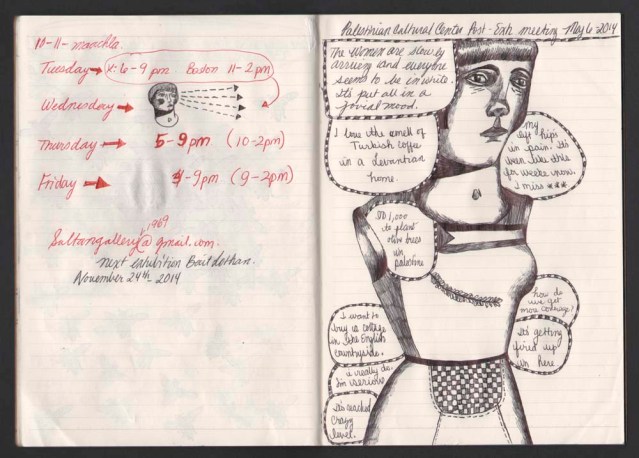 10-11-
Tuesday → 6-9 pm Boston 11-2pm
Wednesday →
Thursday → 5-9pm (10-2pm)
Friday → 4-9pm (9-2pm)
1969
Sultangallery@gmail.com.
next exhibition Bait
November 24th 2014
Palestinian Cultural Center Post-Exh meeting - May 6 2014
The women are slowly
arriving and everyone
seems to be in white.
It's put all in a
jovial mood.
I love the smell of
Turkish coffee
in a levantian
home.
my
left hip's
in pain. It's
been like this
for weeks now.
I miss ***
1,000
to plant
olive trees
in
palestine
I want to
buy a cottage
in the English
countryside.
I really do.
I'm serious
It's reached
crazy
level.
how do
we get
more coverage?
It's getting
fired up
in here